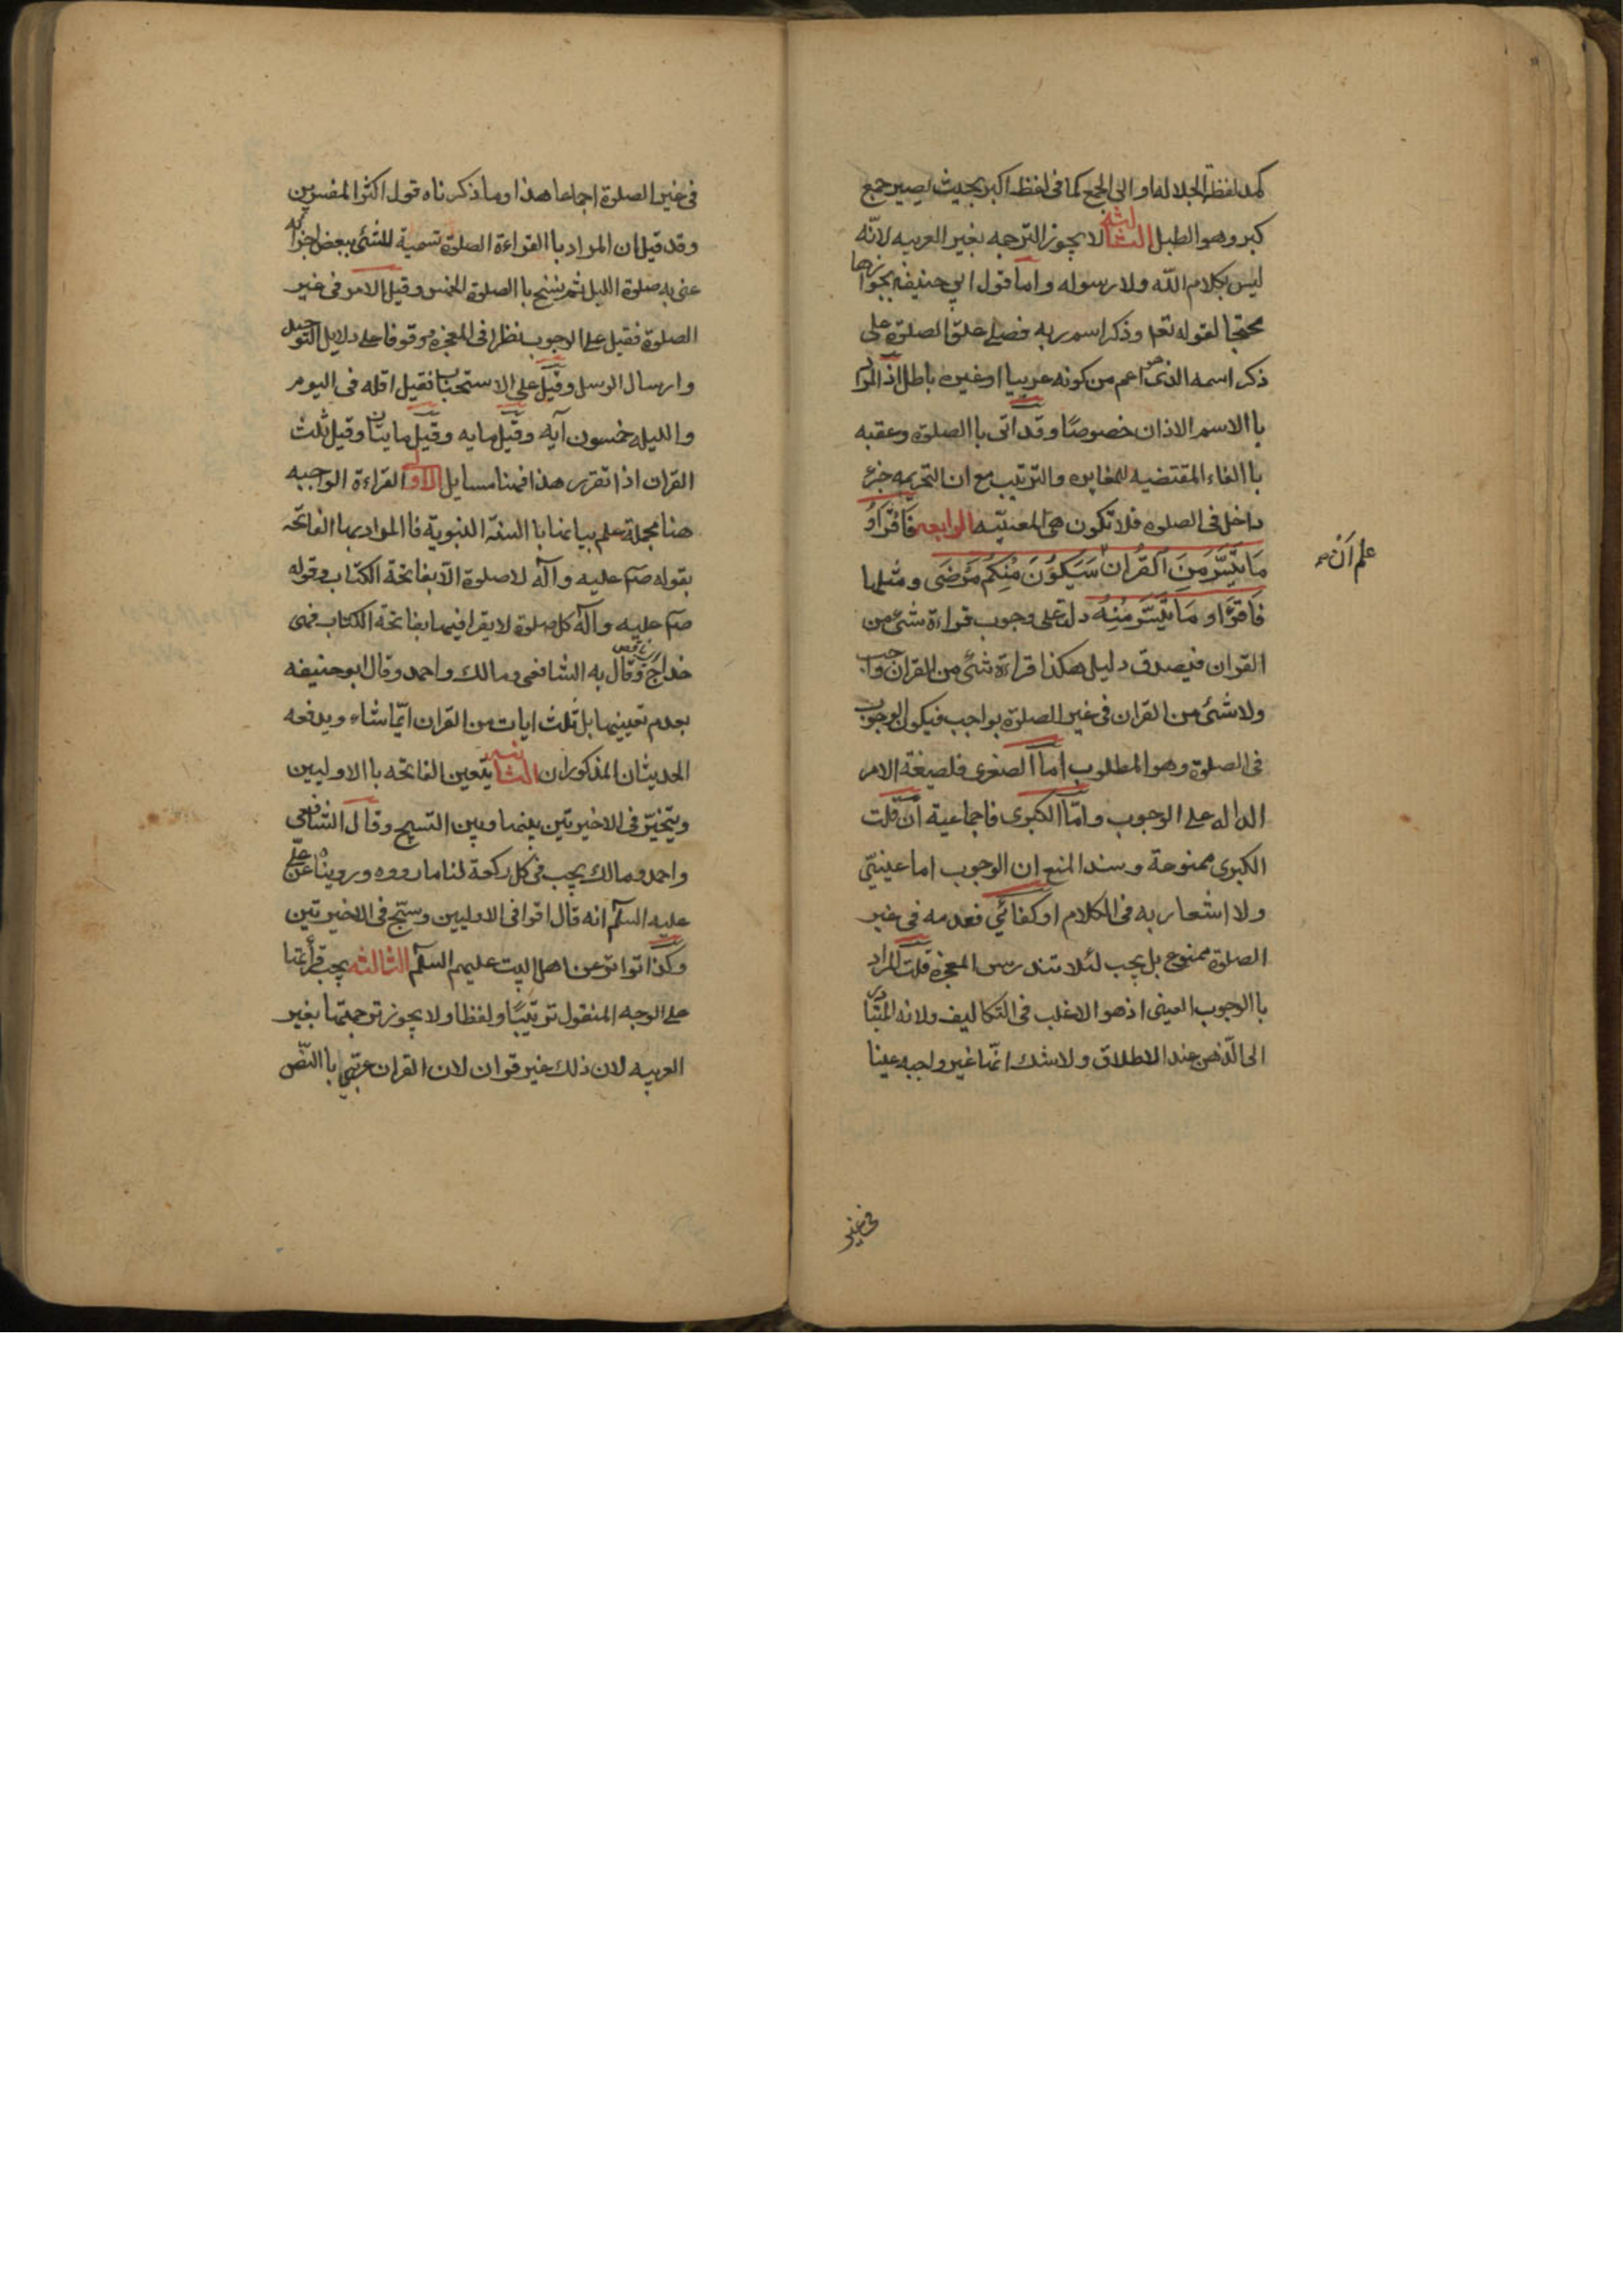 كمد لفظ الجلاله او الى الجمع كما فى لفظ اكبر بحيث يصير جمع
كبر وهو الطبل الثالثه لا يجوز الترجمه بغير العربيه لانّه
ليس بكلام الله ولا رسوله واما قول ابي حنيفه بجوازها
محتجا لقوله تعا وذكر اسم ربه فصلى علق الصلوة على
ذكر اسمه الذى هو اعم من كونه عربيا او غيره باطل اذ المراد
با الاسم الاذان خصوصًا وقد اتى با الصلوة وعقبه
با الفاء المقتضيه للمغايره والترتيب مع ان التحريمه جزء
داخل فى الصلوه فلا تكون هى المعنيّه الرابعه فَاقْرَاوُ
مَا تَيَسَّرَ مِنَ الْقُرْان سَيَكُوْنَ مِنْكُم مَرْضَى ومثلها
علم اَنْ
فَاقرَاو مَا تَيَسَّرَ مِنْهُ دلت على وجوب قراءة شئ من
القران فيصدق دليل هكذا قراءة شئ من القران واجب
ولا شئ من القران فى غير الصلوة بواجب فيكون الوجوب
فى الصلوة وهو المطلوب اما الصغرى فلصيغة الامر
الداله على الوجوب وامّا الكبرى فاجماعية ان قلت
الكبرى ممنوعة وسند المنع ان الوجوب اما عينيّ
ولا اشعار به فى الكلام او كفائي فعدمه فى غير
الصلوة ممنوع بل يجب لئلا تندرس المعجزة قلت المراد
با الوجوب العينى اذ هو الاغلب فى التكاليف ولانه المتبادر
الى الذهن عند الاطلاق ولا شك انّها غير واجبه عينا
فى غير
فى غير الصلوة اجماعا هذا وما ذكرناه قول اكثر المفسرين
وقد قيل ان المراد با القراءة الصلوة تسمية للشئ ببعض اجزائه
عنى به صلوة الليل ثم نسخ با الصلوة الخمس وقيل الامر فى غير
الصلوة فقيل على الوجوب نظرا فى المعجزة موقوفا على دلايل التوحيد
وارسال الرسل وقيل على الاستحباب فقيل اقله فى اليوم
والليله خمسون آيه وقيل مايه وقيل مايتان وقيل ثلث
القران اذا تقرر هذا فهنا مسايل الاولى القراءة الواجبه
هنا مجملة علم بيانها با السنة النبوية فا المراد بها الفاتحة
بقوله صم عليه وآله لا صلوة الّا بفاتحة الكتاب وقوله
صم عليه وآله كل صلوة لا يقرا فيها بفاتحة الكتاب فهى
خداج وقال به الشافعى ومالك واحمد وقال ابو حنيفه
بعدم تعيينها بل ثلث ايات من القران ايّما شاء ويدفعه
الحديثان المذكوران الثانيه يتعين الفاتحه با الاوليين
ويتخيّر فى الاخيرتين بينها وبين التسبيح وقال الشافعى
واحمد ومالك يجب فى كل ركعة لنا ما رووه ورويناه عن على
عليه السلم انه قال اقرا فى الاوليين وسبّح فى الاخيرتين
وكذا تواتر عن اهل البيت عليهم السلم الثالثه يجب قرأتها
على الوجه المنقول ترتيبًا ولفظا ولا يجوز ترجمتها بغير
العربيه لان ذلك غير قران لان القران عربيّ با النّص